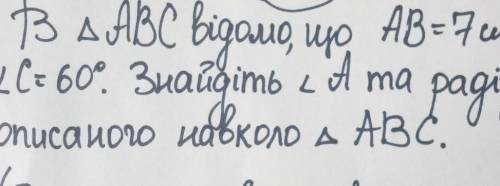 В △ ABC відомо, що AB = 7 см
∠C = 60°. Знайдіть ∠ A та раді
описаного навколо △ ABC.